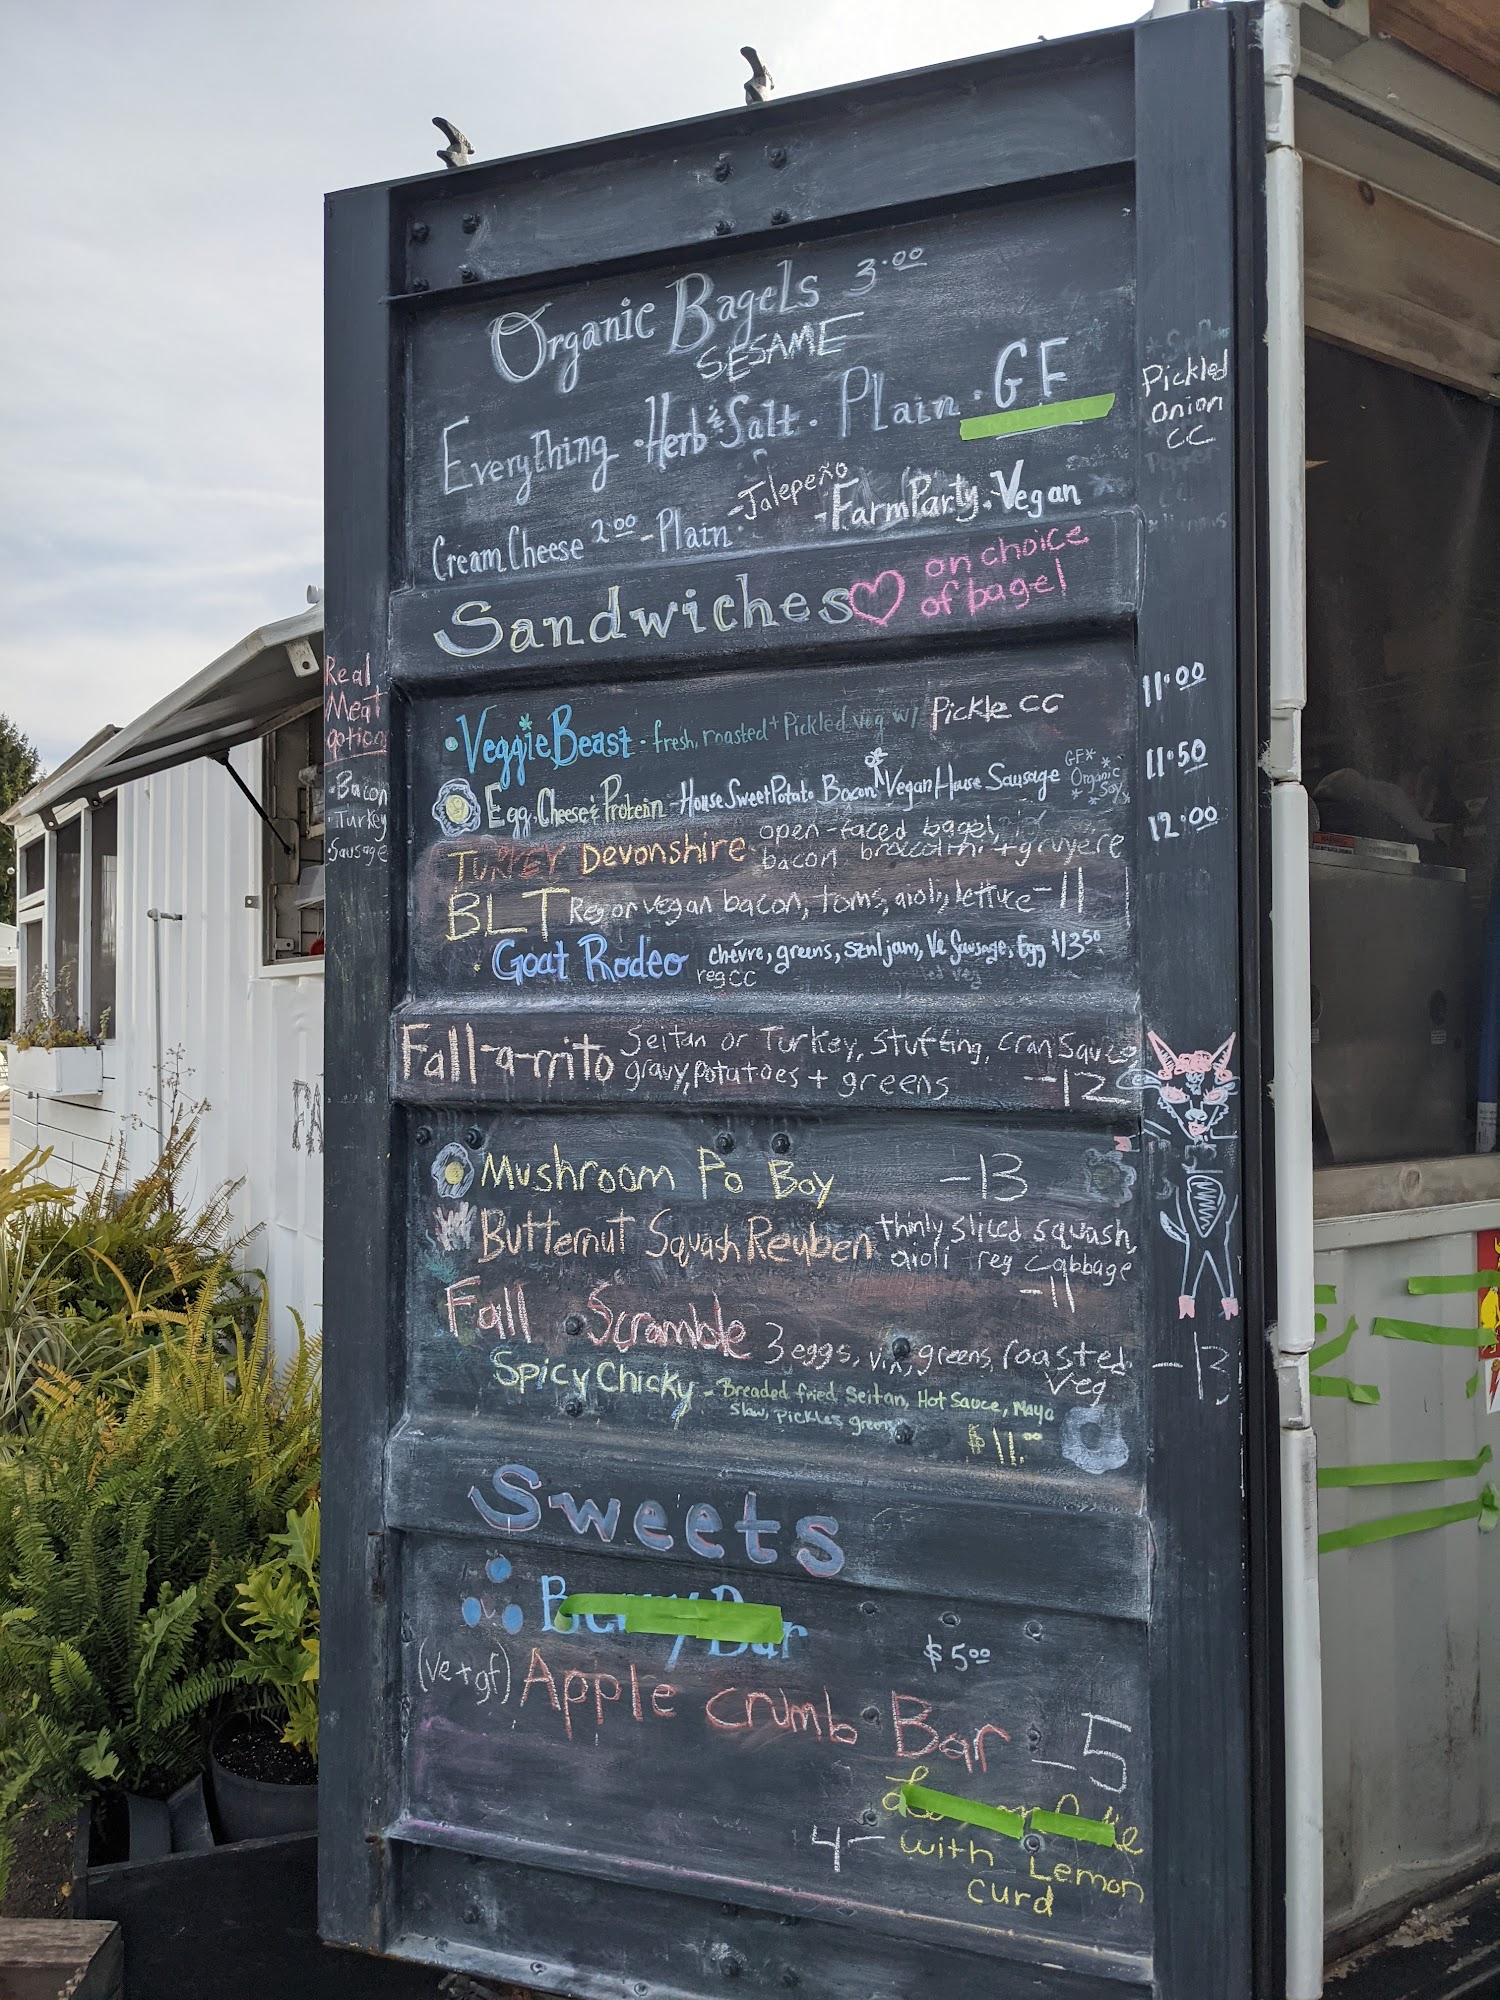 Organic Bagels 3.00
SESAME
Everything · Herb & Salt · Plain · GF
Cream Cheese 2.00 - Plain · - Jalepeño - Farm Party · Vegan
Pickled
Onion
CC
Sandwiches on choice
of bagel
Real
Meat
options
· Bacon
· Turkey
· Sausage
· Veggie Beast · fresh, roasted + Pickled veg w/ Pickle CC 11.00
Egg, Cheese & Protein - House Sweet Potato Bacon * Vegan House Sausage 11.50
GF*
Organic
Soy
TURKEY Devonshire open-faced bagel, 12.00
bacon broccolini + gruyere
BLT Reg or vegan bacon, toms, aioli, lettuce - 11
· Goat Rodeo chévre, greens, sznl jam, Ve Sausage, Egg $13.50
reg CC
Fall-a-rrito Seitan or Turkey, Stuffing, cran Sauce
gravy, potatoes + greens - 12
Mushroom Po Boy - 13
Butternut Squash Reuben thinly sliced squash,
aioli reg cabbage
- 11
Fall Scramble 3 eggs, greens, roasted - 13
Veg
Spicy Chicky - Breaded fried seitan, Hot Sauce, Mayo
Slaw, pickles greens
$11.00
Sweets
Berry Bar $5.00
(ve + gf) Apple Crumb Bar - 5
4 - with Lemon
curd